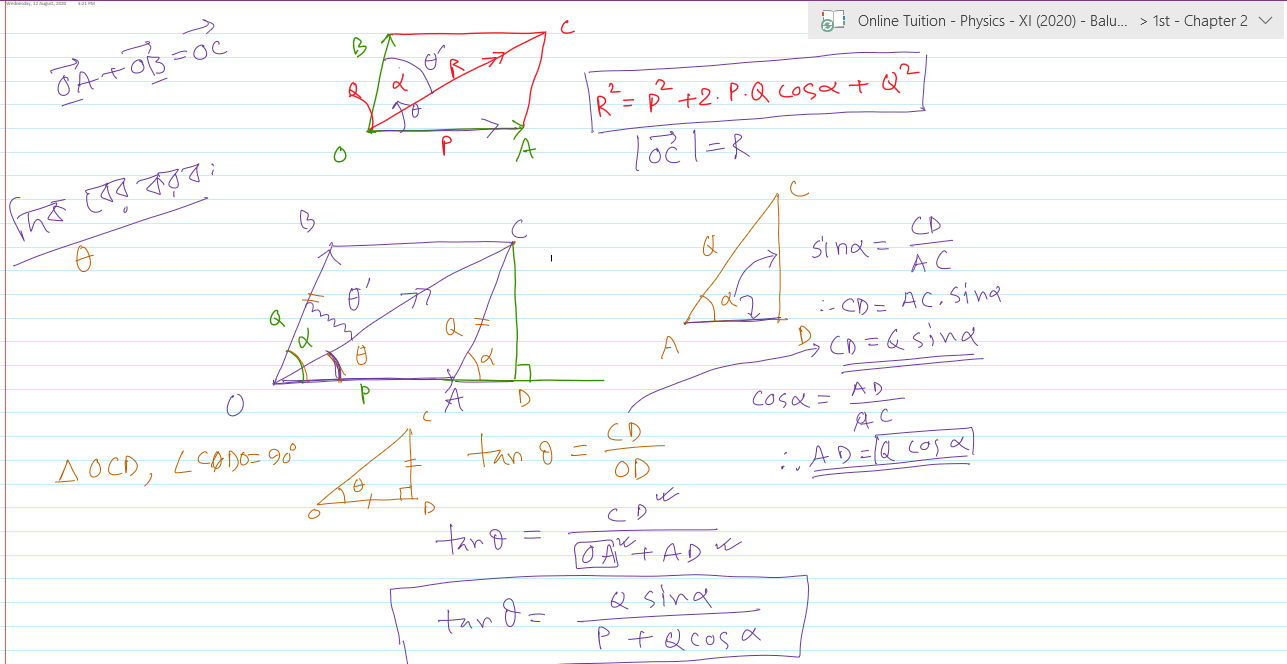 Wednesday, 12 August, 2020 3:21 PM
Online Tuition - Physics - XI (2020) - Balu... > 1st - Chapter 2
OA + OB = OC
B C
θ'
Q α R θ
O P A
R² = P² + 2. P.Q cosα + Q²
|OC| = R
দিক বের করব:
θ
B C
θ'
Q α θ Q α
O P A D
C
Q
α
A D
sinα = CD / AC
∴ CD = AC. sinα
CD = Q sinα
cosα = AD / AC
∴ AD = Q cosα
△ OCD, ∠CDO = 90°
C
θ
O D
tan θ = CD / OD
tan θ = CD / OA + AD
tan θ = Q sinα / P + Q cosα